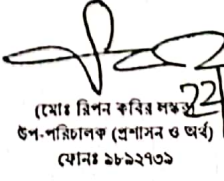 (মোঃ রিপন কবির লস্কর)
22
উপ-পরিচালক (প্রশাসন ও অর্থ)
ফোনঃ ৯৮৯২৭৩৯